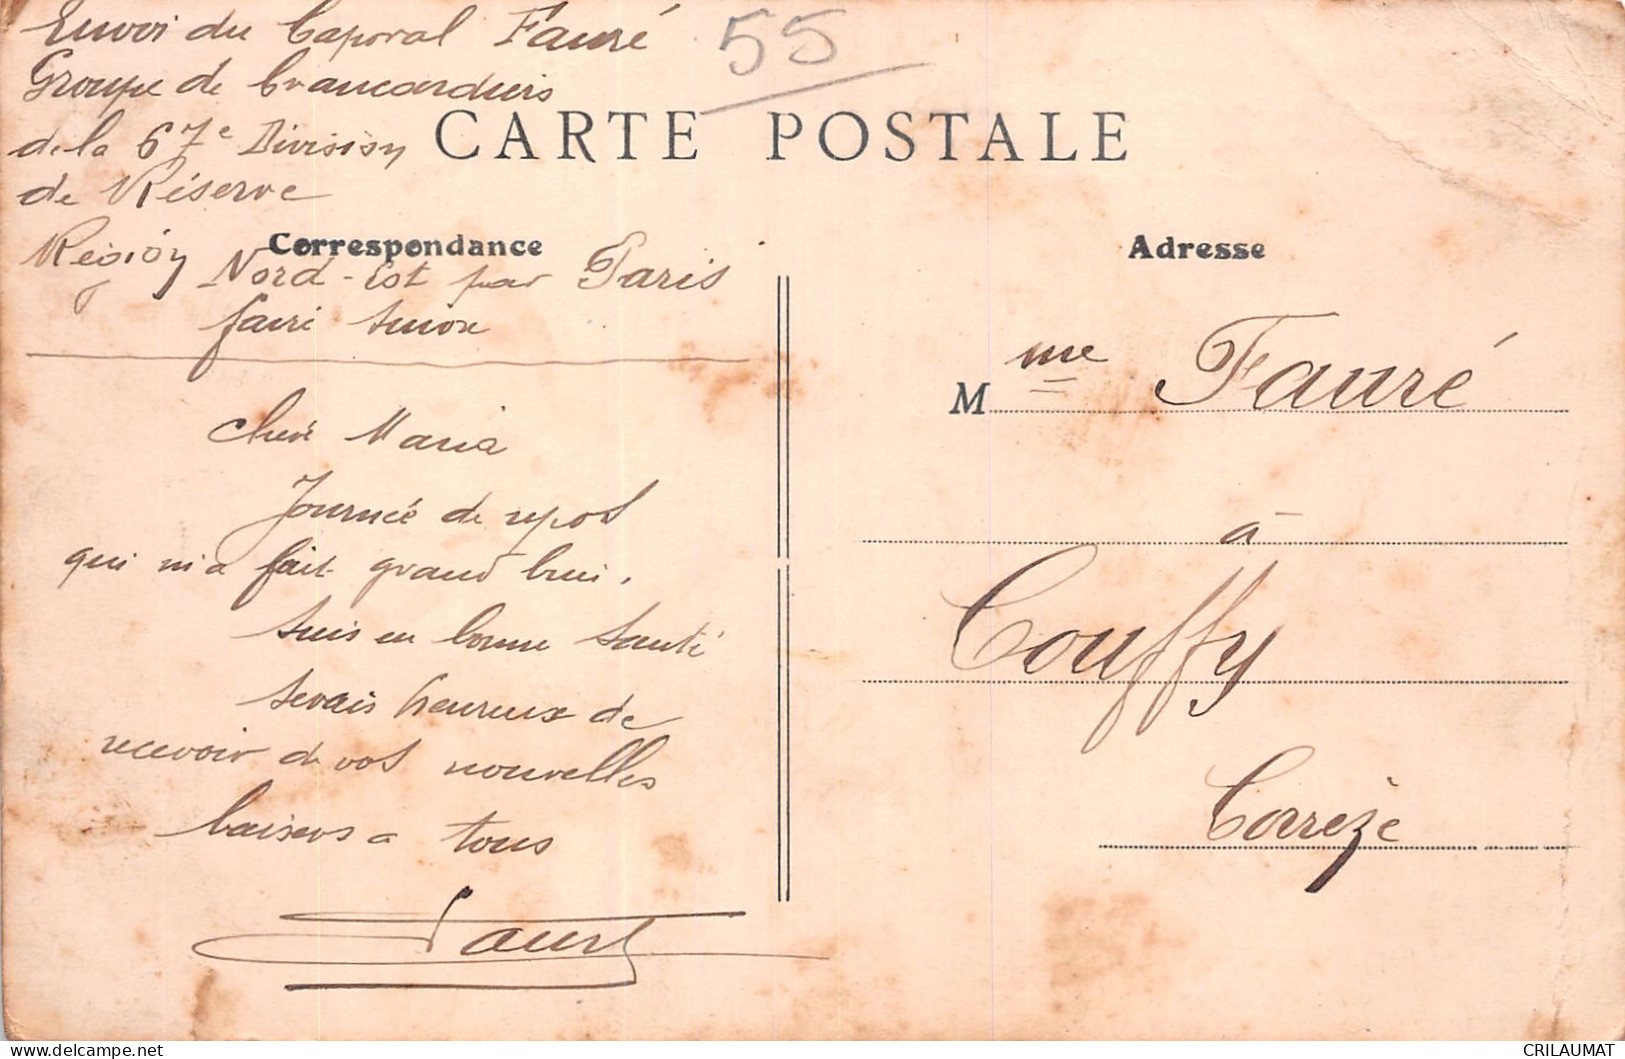 Envoi du Caporal Fauré
55
Groupe de brancardiers
de la 67e Division
CARTE POSTALE
de Réserve
Correspondance
Adresse
Région Nord-Est par Paris
faire suivre
Mme Fauré
à
Couffy
Corrèze
Chère Maria
Journée de repos
qui m'a fait grand bien.
suis en bonne santé
serais heureux de
recevoir de vos nouvelles
baisers a tous
Fauré
CRILAUMAT